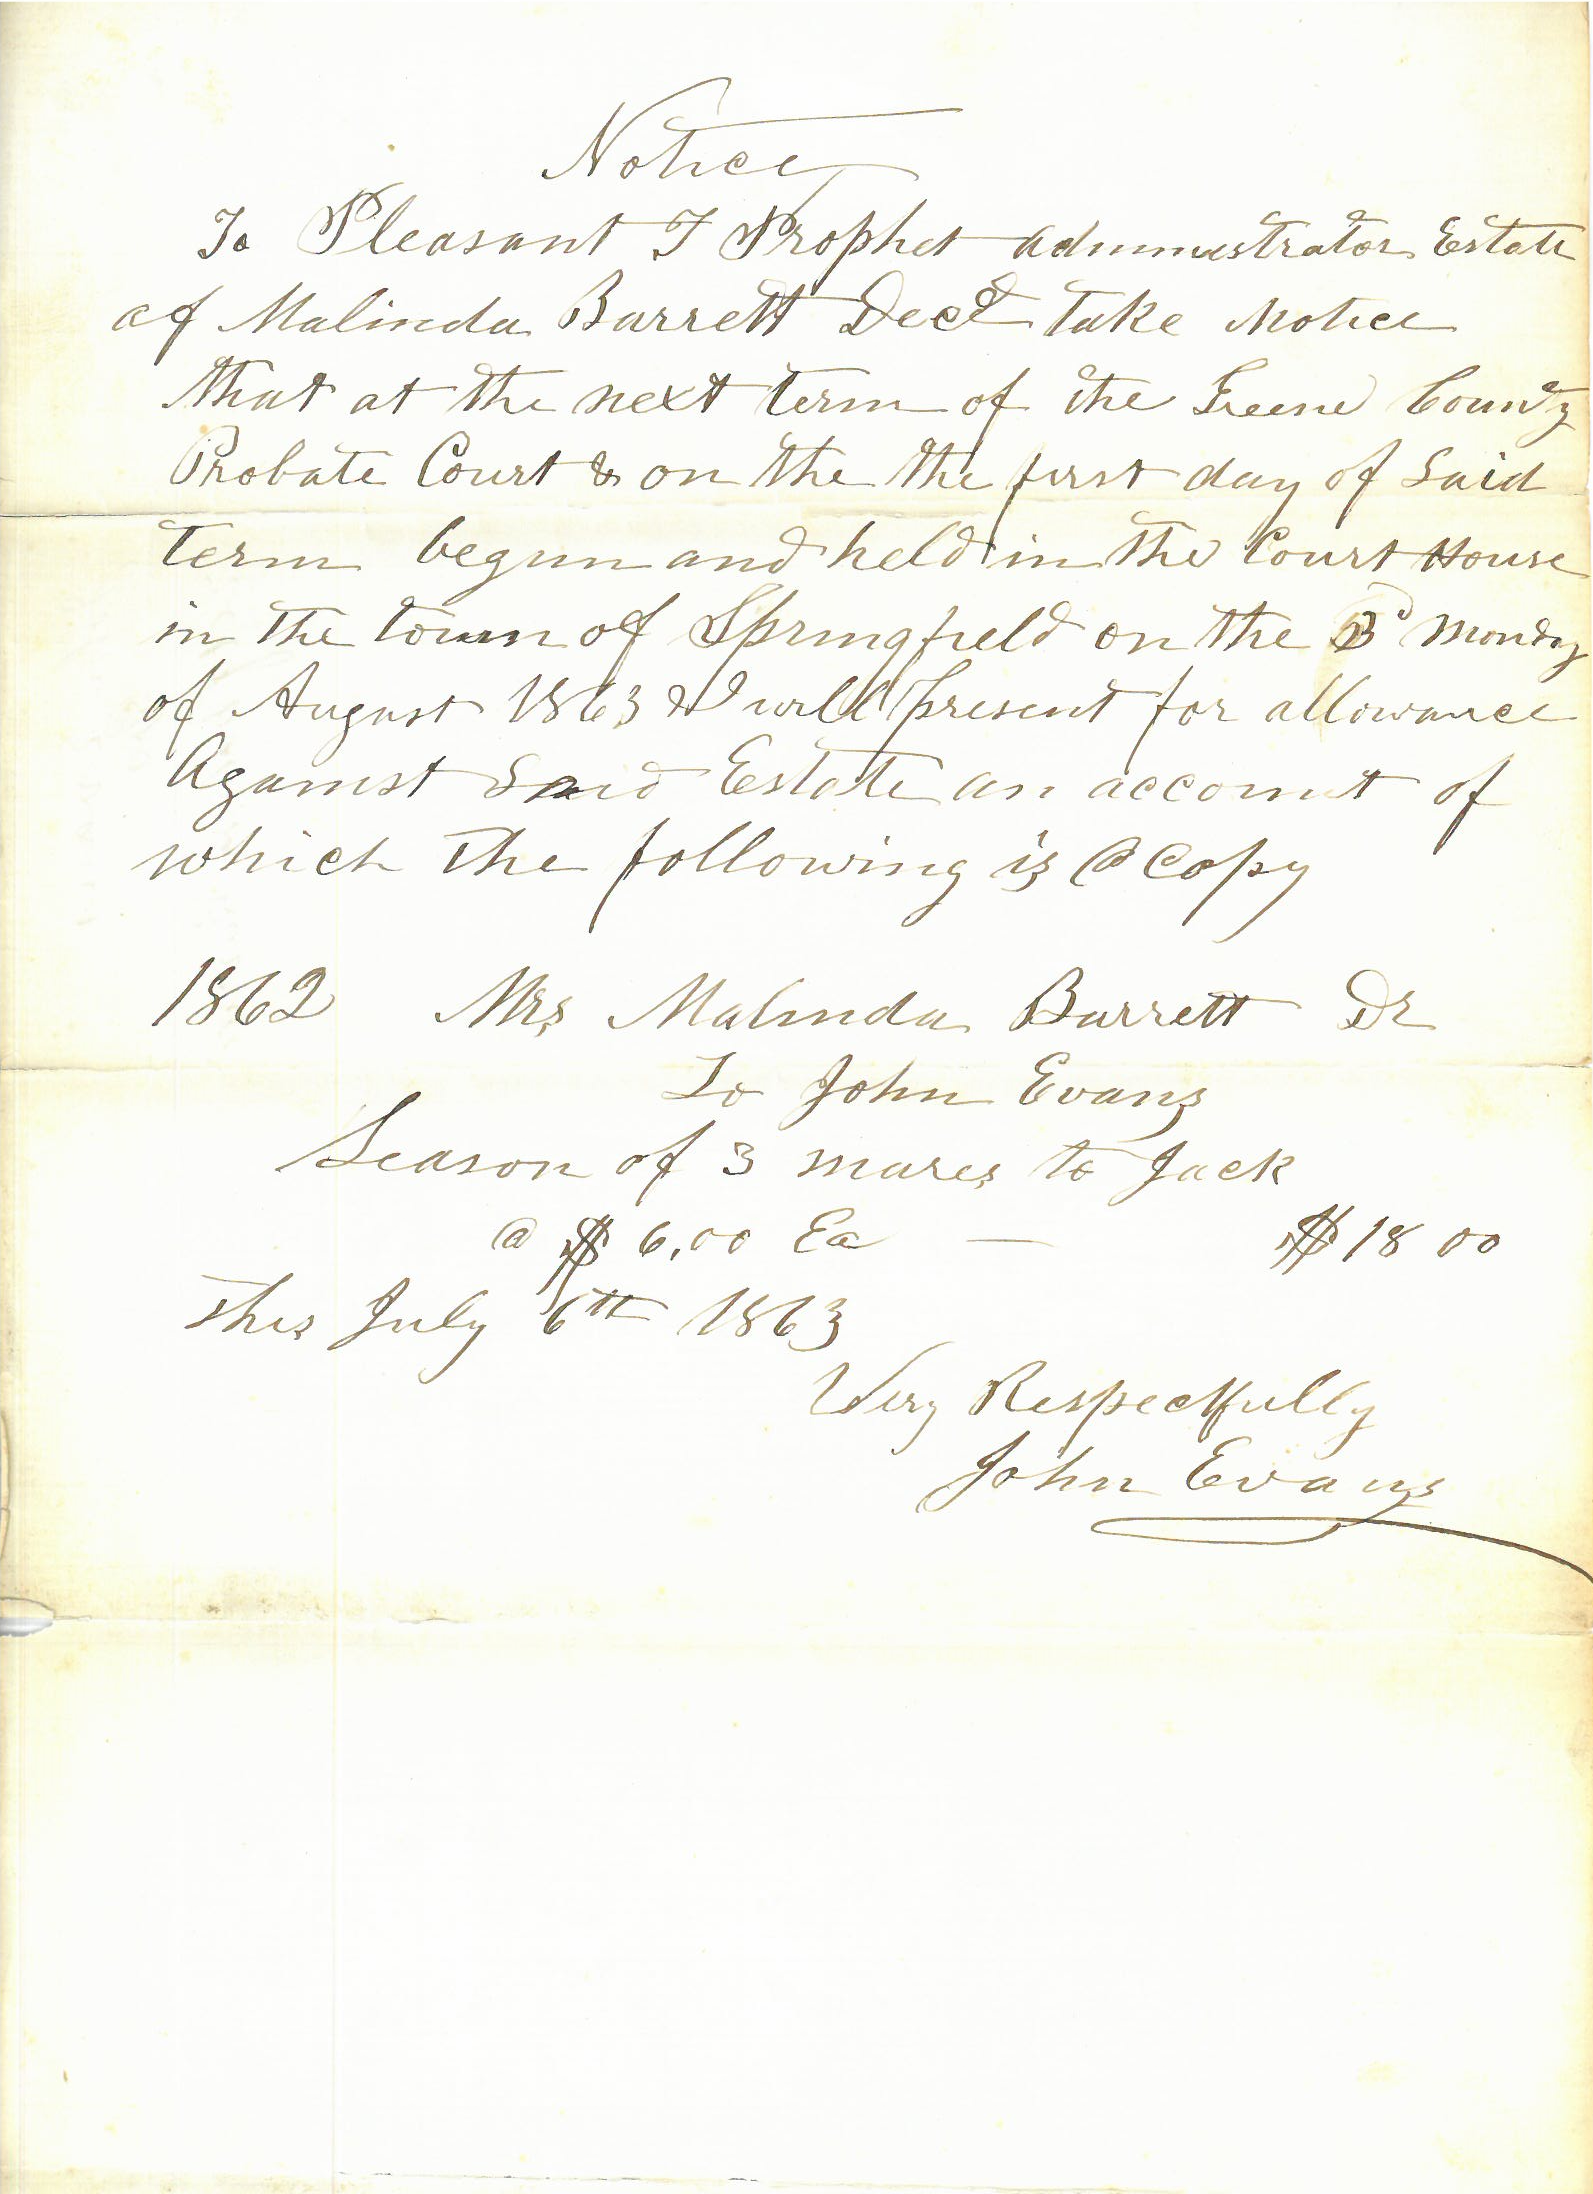 Notice
To Pleasant T Prophet administrator Estate
of Malinda Barrett Decd take Notice
that at the next term of the Greene County
Probate Court & on the the first day of Said
term begun and held in the Court House
in the town of Springfield on the 3d Monday
of August 1863 I will present for allowance
Against Said Estate an account of
which the following is a Copy
1862 Mrs Malinda Barrett Dr
To John Evans
Season of 3 mares to Jack
@ $ 6.00 Ea — $ 18 00
This July 6th 1863
Very Respectfully
John Evans